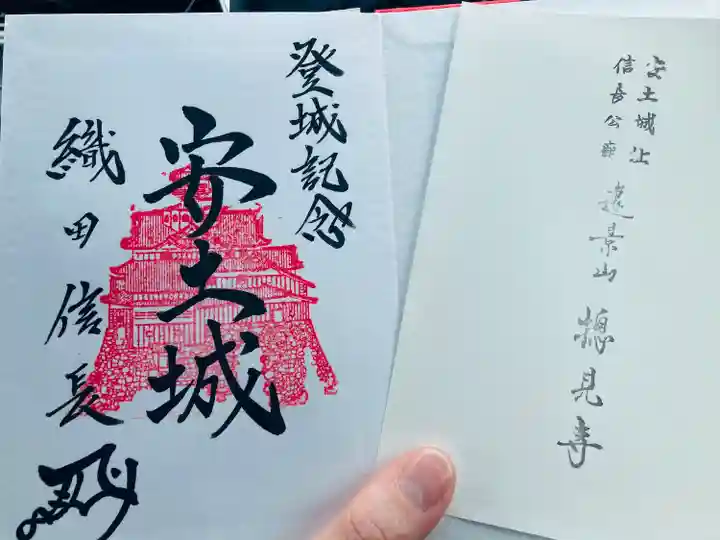 登城記念
安土城
織田信長
安土城址
信長公廟
遠景山
摠見寺